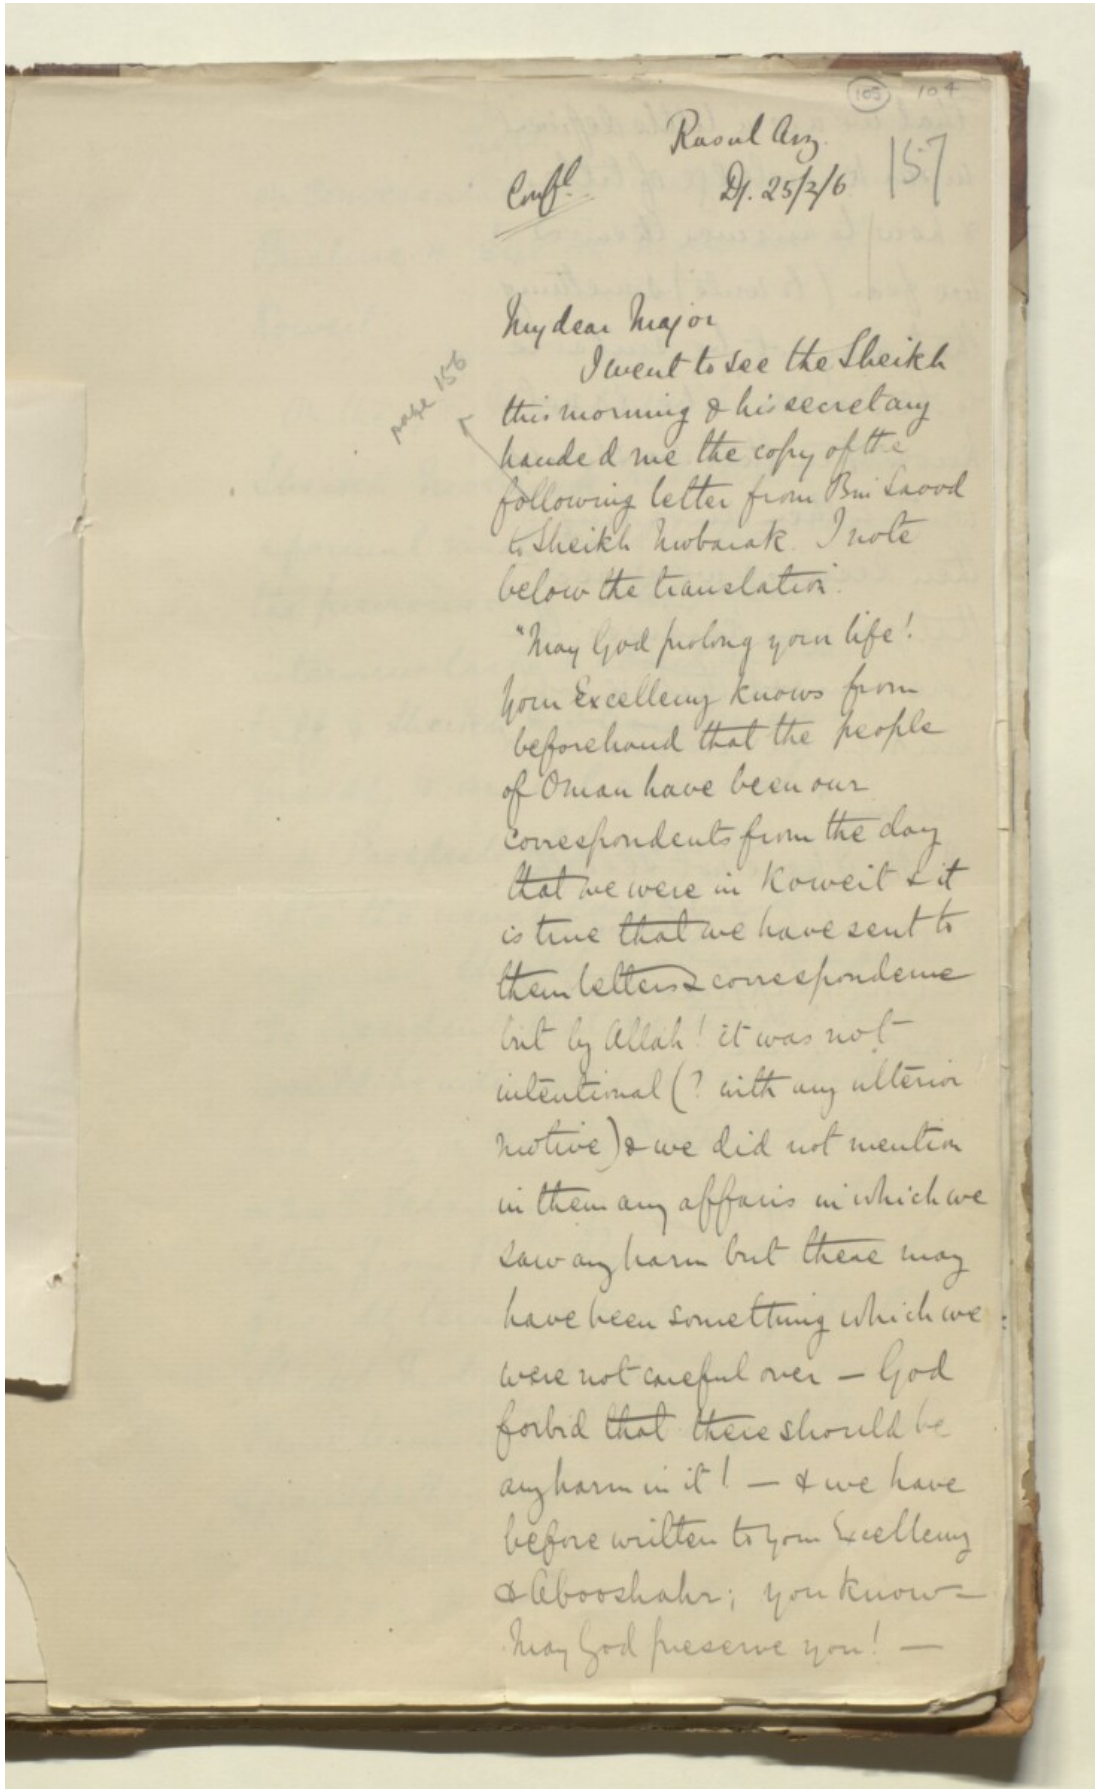 105 104
Rasul Arz.
157
Confl.
D/. 25/2/6
My dear Major
I went to see the Sheikh
page 156
this morning & his secretary
handed me the copy of the
following letter from Bin Saood
to Sheikh Mobarak. I note
below the translation.
"May God prolong your life!
Your Excellency knows from
beforehand that the people
of Oman have been our
correspondents from the day
that we were in Koweit & it
is true that we have sent to
them letters & correspondence
but by Allah! it was not
intentional (? with any ulterior
motive) & we did not mention
in them any affairs in which we
saw any harm but there may
have been something which we
were not careful over — God
forbid that there should be
any harm in it! — & we have
before written to your Excellency
& Abooshahr; you know —
May God preserve you! —